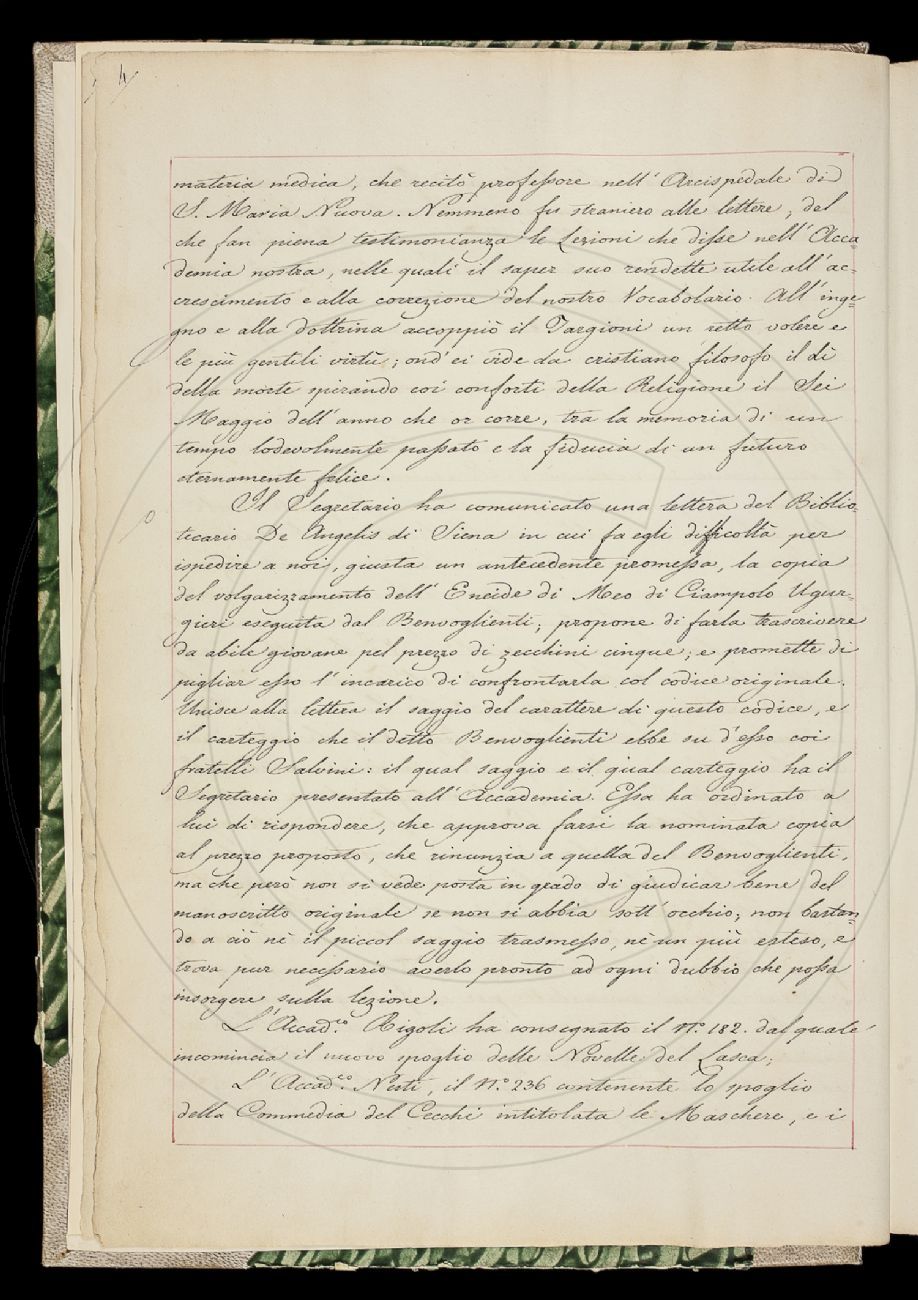 4
materia medica, che recitò professore nell' Arcispedale di
S. Maria Nuova. Nemmeno fu straniero alle lettere, del
che fan piena testimonianza le Lezioni che disse nell' Acca=
demia nostra, nelle quali il saper suo rendette utile all' ac=
crescimento e alla correzione del nostro Vocabolario. All' inge=
gno e alla dottrina accoppiò il Targioni un retto volere e
le più gentili virtù; ond' ei vide da cristiano filosofo il dì
della morte spirando coi conforti della Religione il Sei
Maggio dell' anno che or corre, tra la memoria di un
tempo lodevolmente passato e la fiducia di un futuro
eternamente felice.
Il Segretario ha comunicato una lettera del Biblio=
tecario De Angelis di Siena in cui fa egli difficoltà per
ispedire a noi, giusta un antecedente promessa, la copia
del volgarizzamento dell' Eneide di Meo di Ciampolo Ugur=
gieri eseguita dal Benvoglienti; propone di farla trascrivere
da abile giovane pel prezzo di zecchini cinque; e promette di
pigliar esso l' incarico di confrontarla col codice originale.
Unisce alla lettera il saggio del carattere di questo codice, e
il carteggio che il detto Benvoglienti ebbe su d' esso coi
fratelli Salvini: il qual saggio e il qual carteggio ha il
Segretario presentato all' Accademia. Essa ha ordinato a
lui di rispondere, che approva farsi la nominata copia
al prezzo proposto, che rinunzia a quella del Benvoglienti,
ma che però non si vede posta in grado di giudicar bene del
manoscritto originale se non si abbia sott' occhio; non bastan=
do a ciò nè il piccol saggio trasmesso, nè un più esteso, e
trova pur necessario averlo pronto ad ogni dubbio che possa
insorgere sulla lezione.
L' Accad.co Rigoli ha consegnato il N.o 182. dal quale
incomincia il nuovo spoglio delle Novelle del Lasca;
L' Accad.co Nesti, il N.o 236 contenente lo spoglio
della Commedia del Cecchi intitolata le Maschere, e i